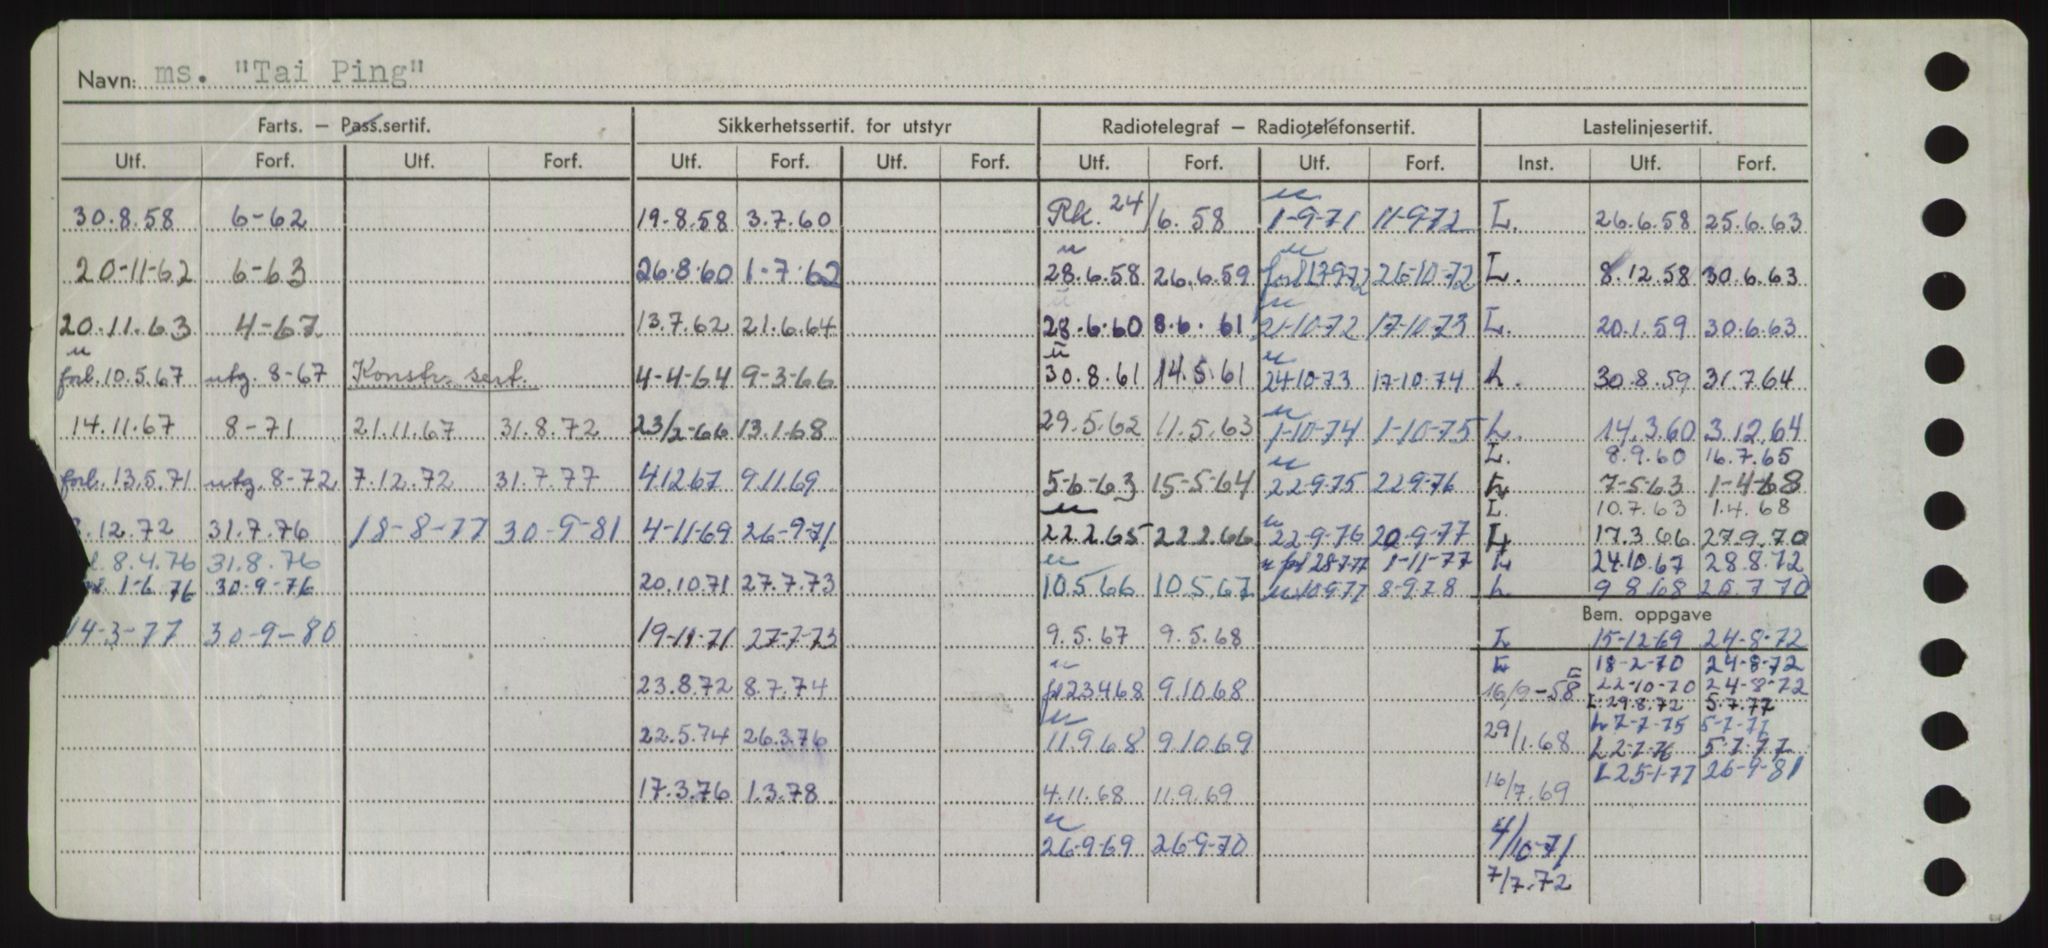 Navn: ms. "Tai Ping"
Farts. — Pass.sertif. Sikkerhetssertif. for utstyr Radiotelegraf — Radiotelefonsertif. Lastelinjesertif.
Utf. Forf. Utf. Forf. Utf. Forf. Utf. Forf. Utf. Forf. Utf. Forf. Inst. Utf. Forf.
30.8.58 6-62 19.8.58 3.7.60 Rk. 24/6.58 u 1-9-71 11-9-72 L. 26.6.58 25.6.63
20-11-62 6-63 26.8.60 1-7-62 u 28.6.58 26.6.59 u 26-10-72 L. 8.12.58 30.6.63
20.11.63 4-67 13.7.62 21.6.64 28.6.60 8.6.61 u 21-10-72 17-10-73 L. 20.1.59 30.6.63
u forl. 10.5.67 utg. 8-67 Konstr. sert. 4-4-64 9-3-66 u 30.8.61 14.5.61 u 24-10-73 17-10-74 L. 30.8.59 31.7.64
14.11.67 8-71 21.11.67 31.8.72 23/2-66 13.1.68 29.5.62 11.5.63 u 1-10-74 1-10-75 L. 14.3.60 3.12.64
L. 8.9.60 16.7.65
forl. 13.5.71 utg. 8-72 7.12.72 31.7.77 4.12.67 9.11.69 5-6-63 15-5-64 u 22-9-75 22-9-76 L 7-5-63 1-4-68
L. 10.7.63 1.4.68
.12.72 31.7.76 18-8-77 30-9-81 4-11-69 26-9-71 u 22.2.65 22.2.66 u 22-9-76 20-9-77 L 17.3.66 27.9.70
8.4.76 31.8.76 u 1-11-77 L 24.10.67 28.8.72
1-6-76 30-9-76 20.10.71 27.7.73 u 10.5.66 10.5.67 u 10-9-77 8-9-78 L 9.8.68 26.7.70
Bem. oppgave
14-3-77 30-9-80 19-11-71 27-7-73 9.5.67 9.5.68 L 15-12-69 24-8-72
L 18-2-70 24-8-72
23.8.72 8.7.74 u 23.4.68 9.10.68 16/9-58 L 22-10-70 24-8-72
L 29.8.72 5.7.77
22.5.74 26.3.76 u 11.9.68 9.10.69 29/1.68 L 7-7-75 5-7-77
L 2-7-76 5-7-77
17.3.76 1.3.78 4.11.68 11.9.69 16/7.69 L 25-1-77 26-9-81
u 26-9-69 26-9-70 4/10-71
7/7.72